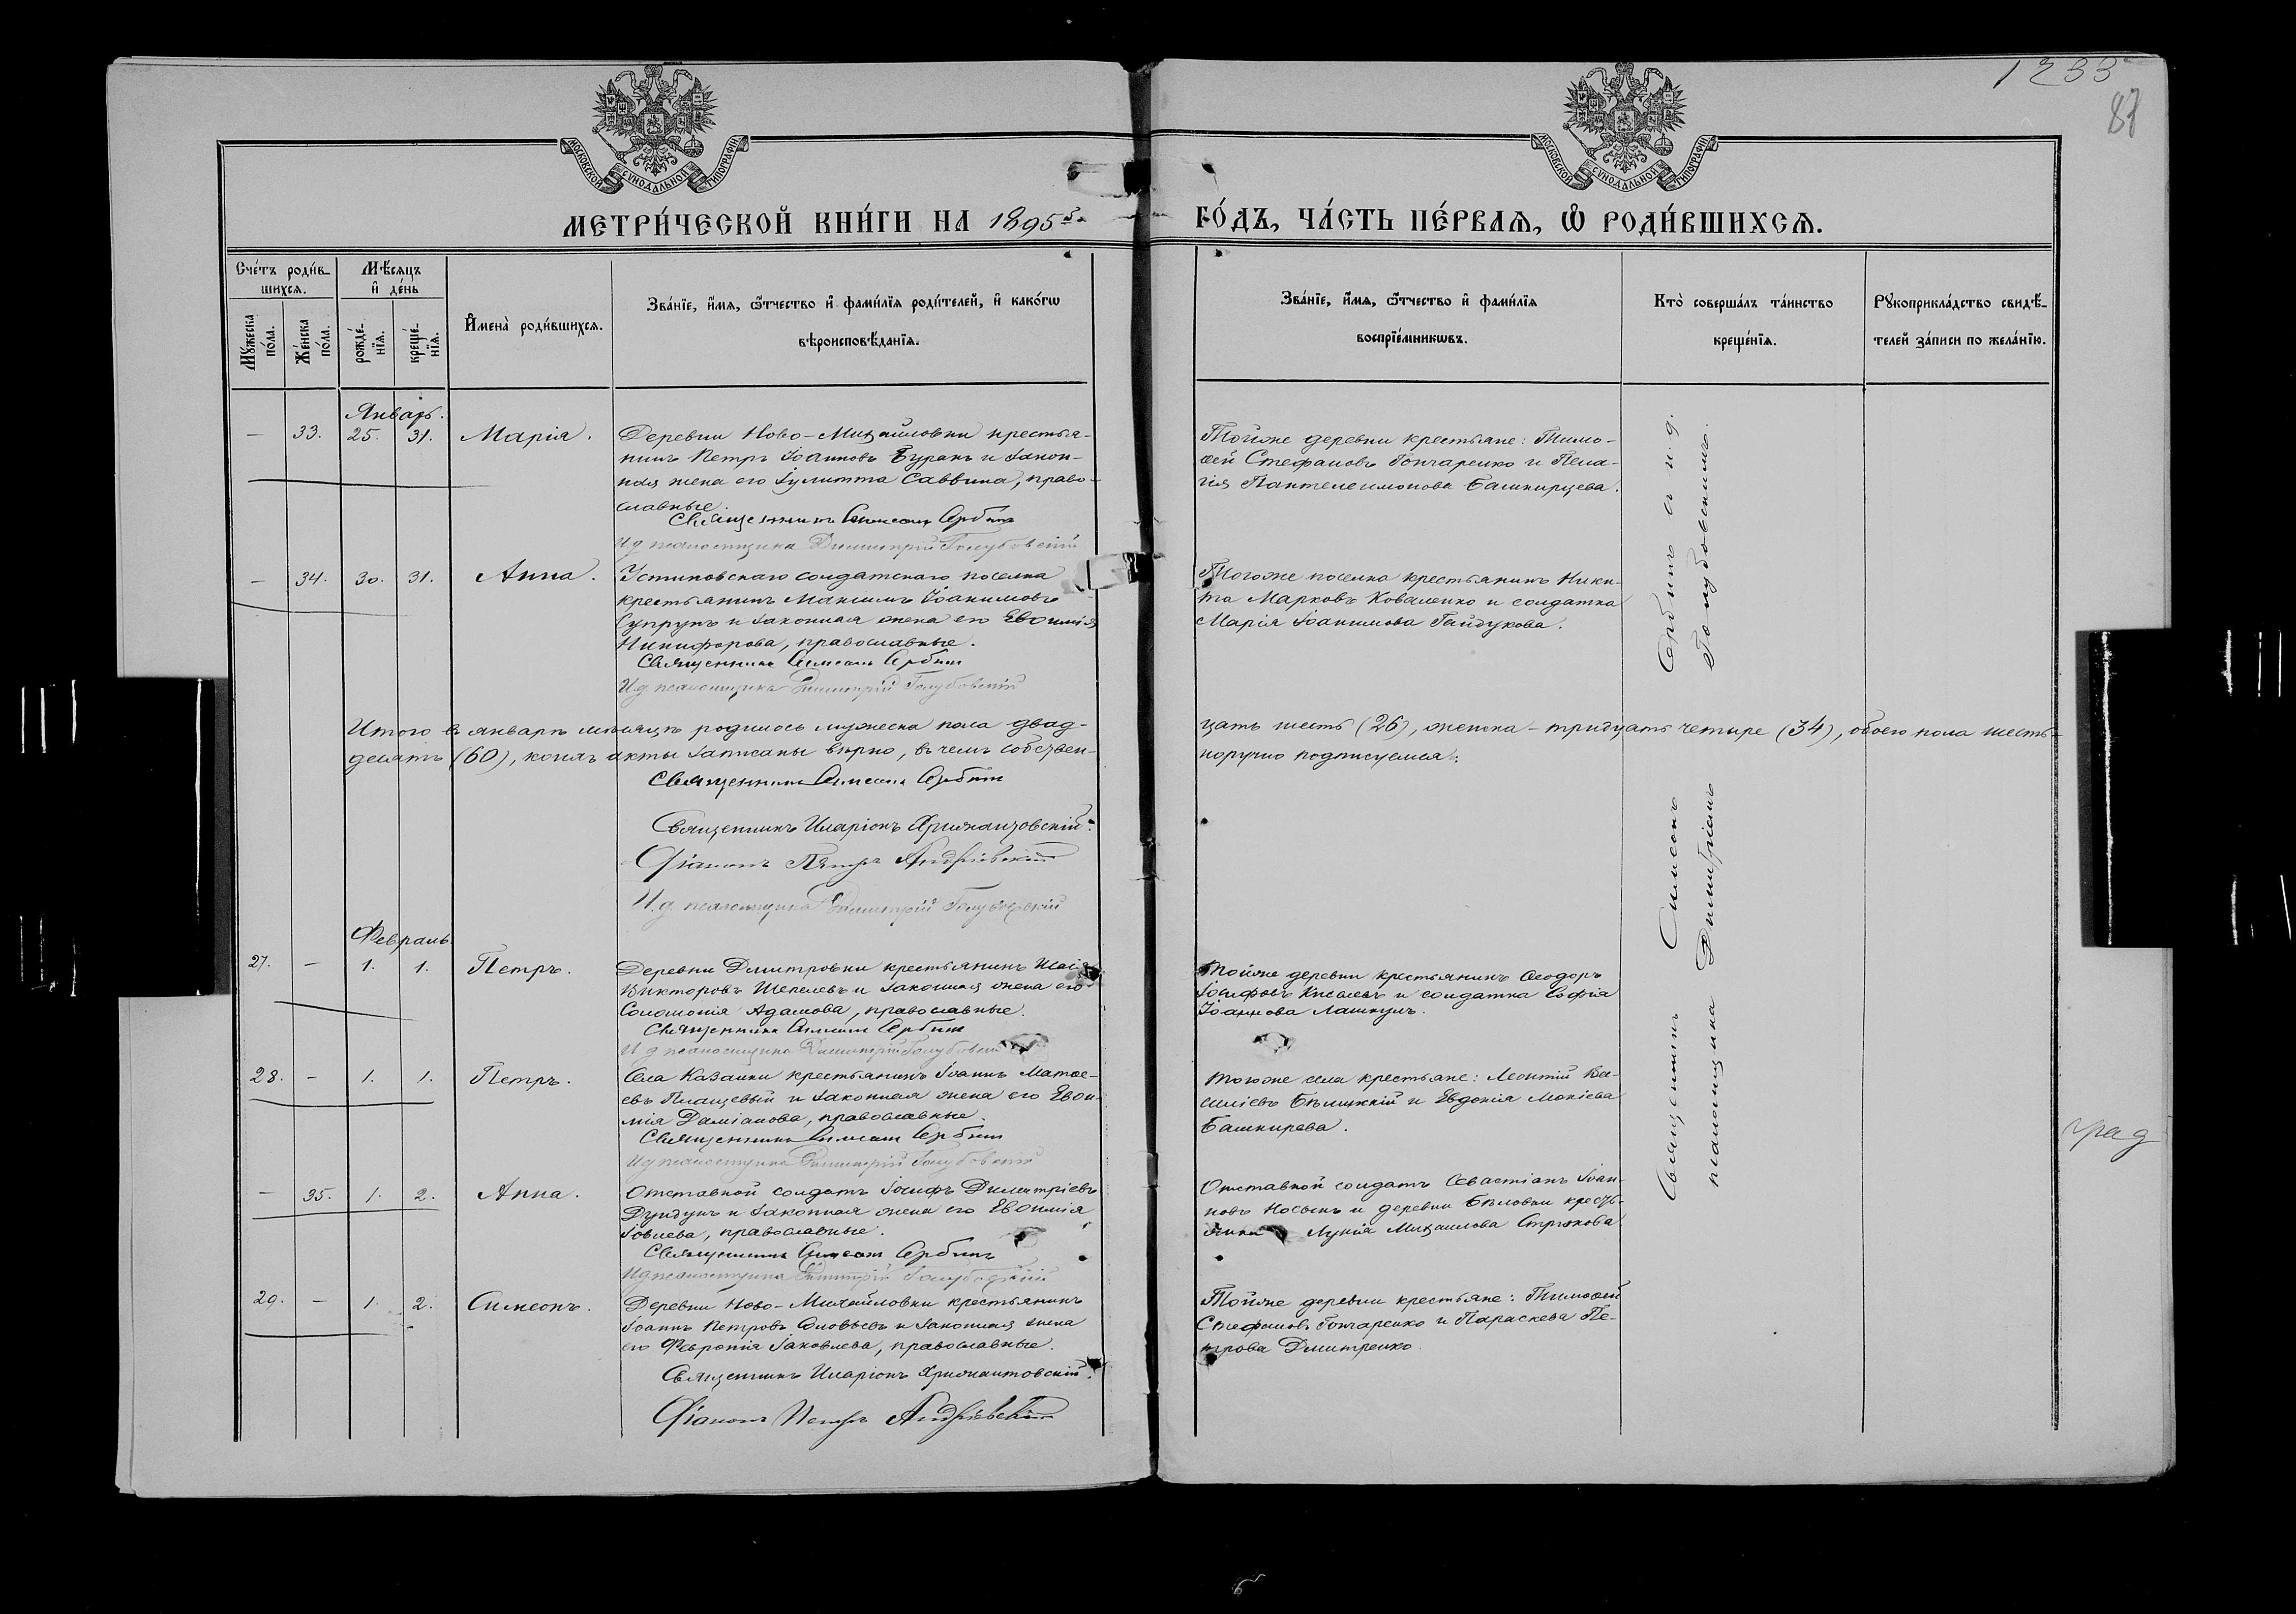 1233
87
МОСКОВСКОЙ СѴНОДАЛЬНОЙ ТИПОГРАФІИ
МОСКОВСКОЙ СѴНОДАЛЬНОЙ ТИПОГРАФІИ
МЕТРИ́ЧЕСКОЙ КНИ́ГИ НА 1895й
ГО́ДЪ, ЧА́СТЬ ПЕ́РВАѦ, Ѡ РОДИ́ВШИХСѦ.
Сче́тъ роди́в-
шихсѧ.
Мꙋ́жеска по́ла.
Же́нска по́ла.
Мѣ́сѧцъ
и҆ де́нь
рожде́-
нїѧ.
креще́-
нїѧ.
И҆мена̀ роди́вшихсѧ.
Зва́нїе, и҆́мѧ, ѻ҆́тчество и҆ фами́лїѧ роди́телей, и҆ како́гѡ
вѣроисповѣ́данїѧ.
Зва́нїе, и҆́мѧ, ѻ҆́тчество и҆ фами́лїѧ
воспрїе́мникѡвъ.
Кто̀ соверша́лъ та́инство
креще́нїѧ.
Рꙋкоприкла́дство свидѣ́-
телей за́писи по жела́нїю.
Январь.
— 33. 25. 31. Марія.
Деревни Ново-Михайловки крестья-
нинъ Петръ Іоанновъ Буракъ и закон-
ная жена его Іулитта Саввина, право-
славные.
Священникъ Симеонъ Сербинъ
И.д. псаломщика Димитрій Голубовскій
Тойже деревни крестьяне: Тимо-
ѳей Стефановъ Гончаренко и Пела-
гія Пантелеимонова Башкирцева.
— 34. 30. 31. Анна.
Устиновскаго солдатскаго поселка
крестьянинъ Максимъ Іоакимовъ
Супрунъ и законная жена его Евѳимія
Никифорова, православные.
Священникъ Симеонъ Сербинъ
И.д. псаломщика Димитрій Голубовскій
Тогоже поселка крестьянинъ Ники-
та Марковъ Коваленко и солдатка
Марія Іоакимова Гайдукова.
Итого въ январѣ мѣсяцѣ родилось мужеска пола двад-
цать шесть (26), женска – тридцать четыре (34), обоего пола шесть-
десятъ (60), коихъ акты записаны вѣрно, въ чемъ собствен-
норучно подписуемся:
Священникъ Симеонъ Сербинъ
Священникъ Иларіонъ Крижановскій
Діаконъ Петръ Андріевскій
И.д. псаломщика Димитрій Голубовскій
Февраль
27. — 1. 1. Петръ.
Деревни Дмитровки крестьянинъ Исаія
Викторовъ Шепелевъ и законная жена его
Соломонія Адамова, православные.
Священникъ Симеонъ Сербинъ
И.д. псаломщика Димитрій Голубовскій
Тойже деревни крестьянинъ Ѳеодоръ
Іосифовъ Киселевъ и солдатка Софія
Іоаннова Лашкулъ.
28. — 1. 1. Петръ.
Села Казанки крестьянинъ Іоаннъ Матѳе-
евъ Плащевый и законная жена его Евѳи-
мія Даміанова, православные.
Священникъ Симеонъ Сербинъ
И.д. псаломщика Димитрій Голубовскій
Тогоже села крестьяне: Леонтій Ва-
силіевъ Бѣлицкій и Евдокія Мокіева
Башкирева.
— 35. 1. 2. Анна.
Отставной солдатъ Іосифъ Димитріевъ
Дундукъ и законная жена его Евѳимія
Іовлева, православные.
Священникъ Симеонъ Сербинъ
И.д. псаломщика Димитрій Голубовскій
Отставной солдатъ Севастіанъ Іоан-
новъ Носыкъ и деревни Бѣловки кресть-
янка Лукія Михаилова Стрюкова
29. — 1. 2. Симеонъ.
Деревни Ново-Михайловки крестьянинъ
Іоаннъ Петровъ Соловьевъ и законная жена
его Февронія Іаковлева, православные.
Священникъ Иларіонъ Крижановскій.
Діаконъ Петръ Андріевскій
Тойже деревни крестьяне: Тимоѳей
Стефановъ Гончаренко и Параскева Пе-
трова Дмитренко.
Священникъ Симеонъ Сербинъ и и.д.
псаломщика Димитріемъ Голубовскимъ.
град